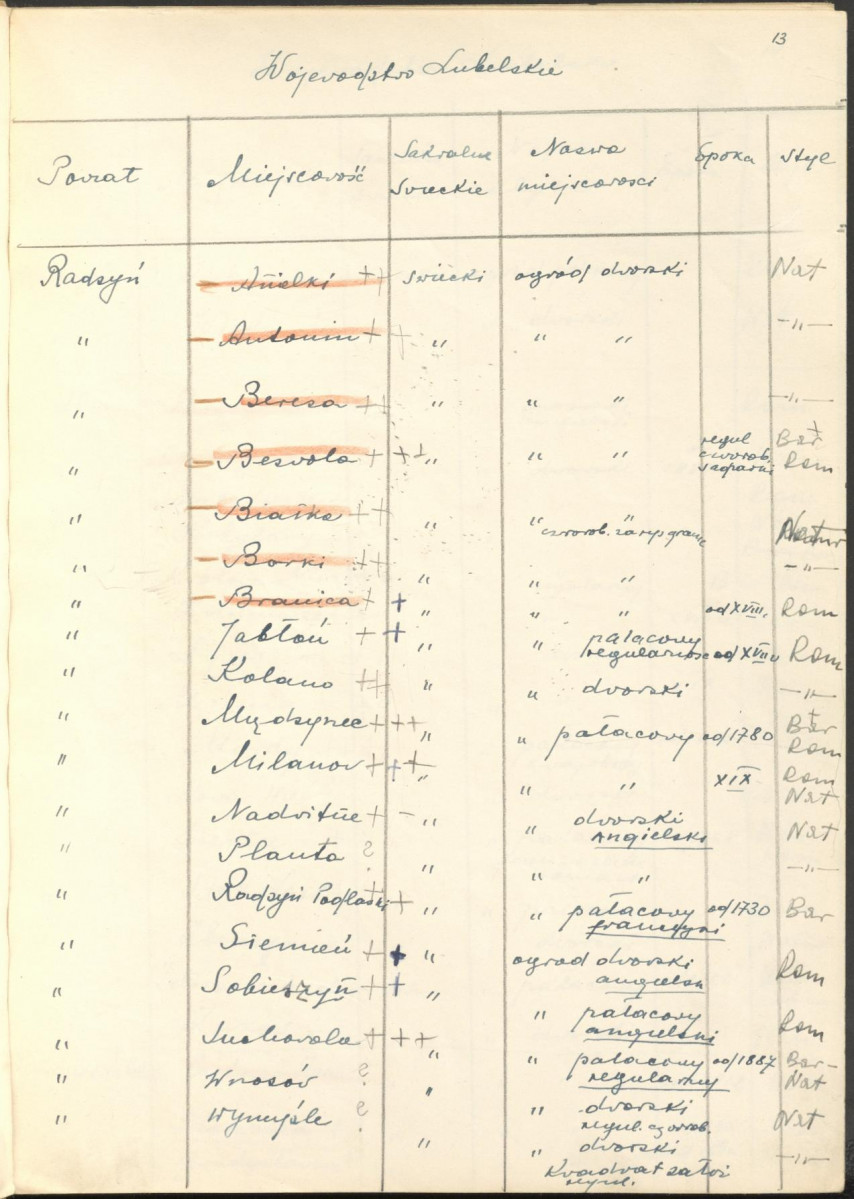 13
Województwo Lubelskie
Powiat Miejscowość Sakralne Świeckie Nazwa miejscowości Epoka Styl
Radzyń – Anielki ++ świecki ogród dworski Nat
" – Antonin ++ " " " —"—
" – Bereza ++ " " " —"—
" – Bezwola +++ " " " regul czworob. Bar + Rom
" – Białka ++ " " " czworob. zarys granic Nat
" – Borki ++ " " " —"—
" – Branica ++ " " " od XVIII. Rom
" Jabłoń ++ " " pałacowy regularność od XVII Rom
" Kolano ++ " " dworski —"—
" Międzyrzec +++ " " pałacowy od 1780 Bar + Rom
" Milanów +++ " " " XIX Rom Nat
" Nadwitne + – " " dworski Angielski Nat
" Planta ? " " " —"—
" Radzyń Podlaski ++ " " pałacowy od 1730 francuski Bar
" Siemień ++ " ogród dworski angielski Rom
" Sobieszyn ++ " " pałacowy angielski Rom
" Suchowola +++ " " pałacowy od 1887 regularny Bar – Nat
" Wrzosów ? " " dworski regul. czworob. Nat
" Wymyśle ? " " dworski Kwadrat regul. —"—